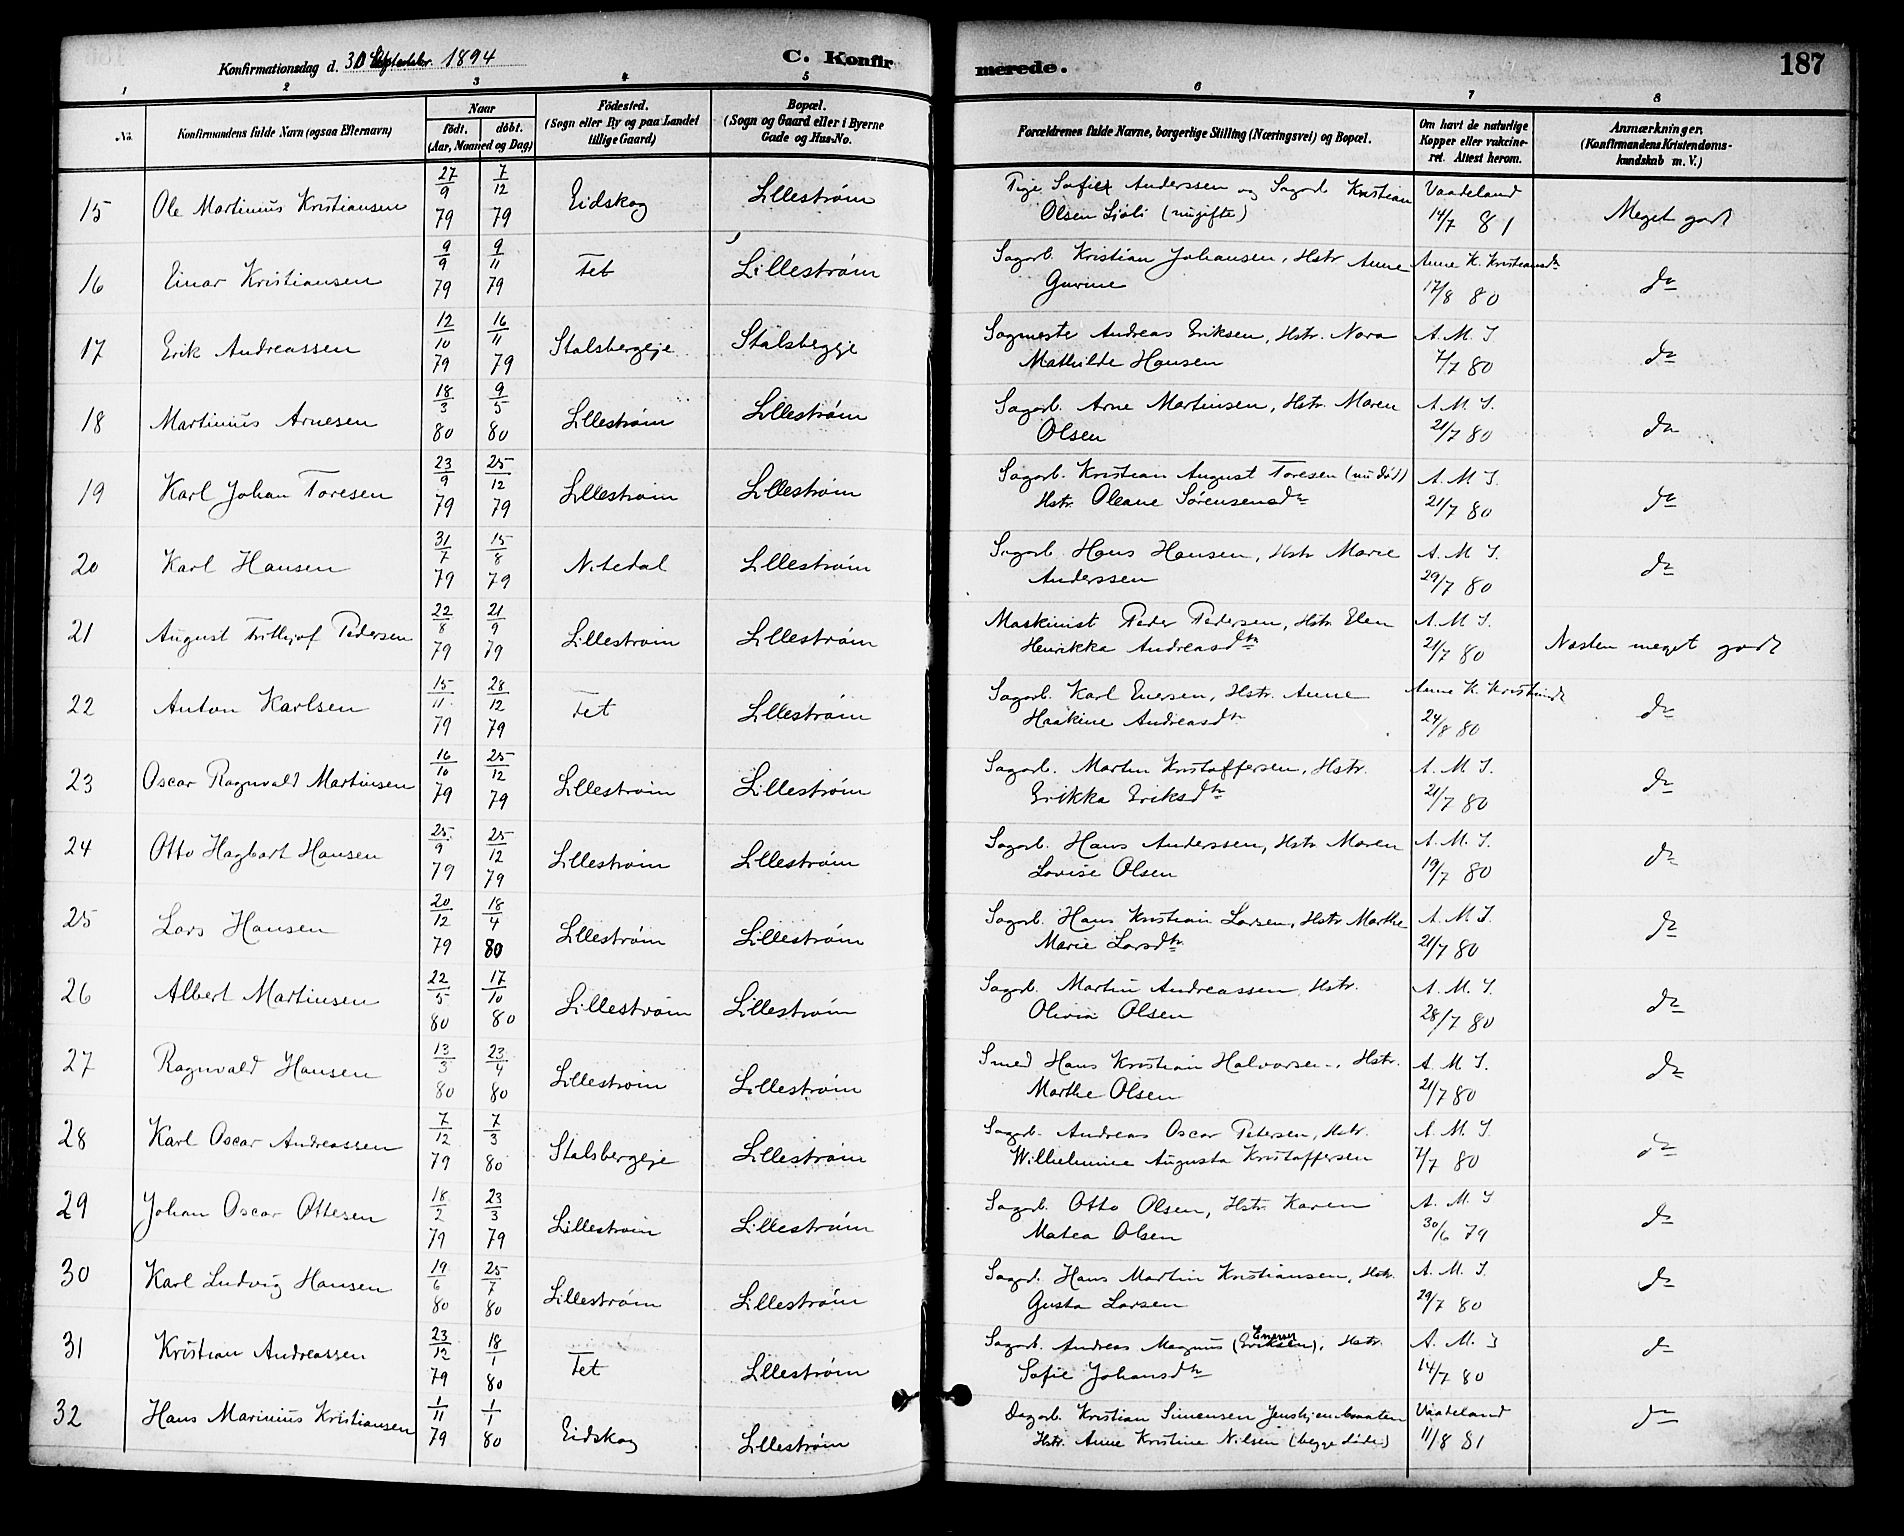 Konfirmationsdag d. 30 September 1894
C. Konfirmerede.
187
1 2 3 4 5 6 7 8
No.
Konfirmandens fulde Navn (ogsaa Efternavn)
Naar
födt. döbt.
(Aar, Maaned og Dag)
Födested.
(Sogn eller By og paa Landet
tillige Gaard)
Bopæl.
(Sogn og Gaard eller i Byerne
Gade og Hus-No.
Forældrenes fulde Navne, borgerlige Stilling (Næringsvei) og Bopæl.
Om havt de naturlige
Kopper eller vakcineret. Attest herom.
Anmærkninger.
(Konfirmandens Kristendomskundskab m. V.)
15 Ole Martinius Kristiansen 27/9 79 7/12 79 Eidskog Lillestrøm Pige Sofie Anderssen og Sagarb. Kristian
Olsen (ugifte) Vaadeland 14/7 81 Meget godt
16 Einar Kristiansen 9/9 79 9/11 79 Fet Lillestrøm Sagarb. Kristian Johansen, Hstr Anne
Gurine Anne K. Kristiansdr 17/8 80 do
17 Erik Andreassen 12/10 79 16/11 79 Stalsbergeje Stalsbegeje Sagmester Andreas Eriksen, Hstr. Nora
Mathilde Hansen A. M. I. 7/7 80 do
18 Martinius Arnesen 18/3 80 9/5 80 Lillestrøm Lillestrøm Sagarb. Arne Martinsen, Hstr. Maren
Olsen A. M. I. 21/7 80 do
19 Karl Johan Toresen 23/9 79 25/12 79 Lillestrøm Lillestrøm Sagarb. Kristian August Toresen (nu død)
Hstr. Oleane Sørensensdr A. M. I. 21/7 80 do
20 Karl Hansen 31/7 79 15/8 79 Nitedal Lillestrøm Sagarb. Hans Hansen, Hstr Marie
Anderssen A. M. I. 29/7 80 do
21 August Frithjof Pedersen 22/8 79 21/9 79 Lillestrøm Lillestrøm Maskinist Peder Pedersen, Hstr. Elen
Henrikka Andreasdtr A. M. I. 21/7 80 Næsten meget godt
22 Anton Karlsen 15/11 79 28/12 79 Fet Lillestrøm Sagarb. Karl Enersen, Hstr. Anne
Haakine Andreasdtr Anne K. Kristiansdr 24/8 80 do
23 Oscar Ragnvald Martinsen 16/10 79 25/12 79 Lillestrøm Lillestrøm Sagarb. Martin Kristoffersen, Hstr.
Erikka Eriksdtr A. M. I. 21/7 80 do
24 Otto Hagbart Hansen 25/9 79 25/12 79 Lillestrøm Lillestrøm Sagarb. Hans Anderssen, Hstr Maren
Lovise Olsen A. M. I. 19/7 80 do
25 Lars Hansen 20/12 79 18/4 80 Lillestrøm Lillestrøm Sagarb. Hans Kristian Larsen, Hstr Marthe
Marie Larsdtr A. M. I. 21/7 80 do
26 Albert Martinsen 22/5 80 17/10 80 Lillestrøm Lillestrøm Sagarb. Martin Andreassen, Hstr.
Olivia Olsen A. M. I. 28/7 80 do
27 Ragnvald Hansen 13/3 80 23/4 80 Lillestrøm Lillestrøm Smed Hans Kristian Halvorsen, Hstr.
Marthe Olsen A. M. I. 21/7 80 do
28 Karl Oscar Andreassen 7/12 79 7/3 80 Stalsbergeje Lillestrøm Sagarb. Andreas Oscar Petersen, Hstr.
Wilhelmine Augusta Kristoffersen A. M. I. 7/7 80 do
29 Johan Oscar Ottesen 18/2 79 23/3 79 Lillestrøm Lillestrøm Sagarb. Otto Olsen, Hstr. Karen
Matea Olsen A. M. I 30/6 79 do
30 Karl Ludvig Hansen 19/6 80 25/7 80 Lillestrøm Lillestrøm Sagarb. Hans Martin Kristiansen, Hstr.
Gusta Larsen A. M. I. 29/7 80 do
31 Kristian Andreassen 23/12 79 18/1 80 Fet Lillestrøm Sagarb. Andreas Magnus (Eriksen) Enersen, Hstr.
Sofie Johansdtr A. M. I 14/7 80 do
32 Hans Marinius Kristiansen 1/11 79 1/1 80 Eidskog Lillestrøm Dagarb. Kristian Simensen
Hstr. Anne Kristine Nilsen (begge døde) Vaadeland 11/8 81 do